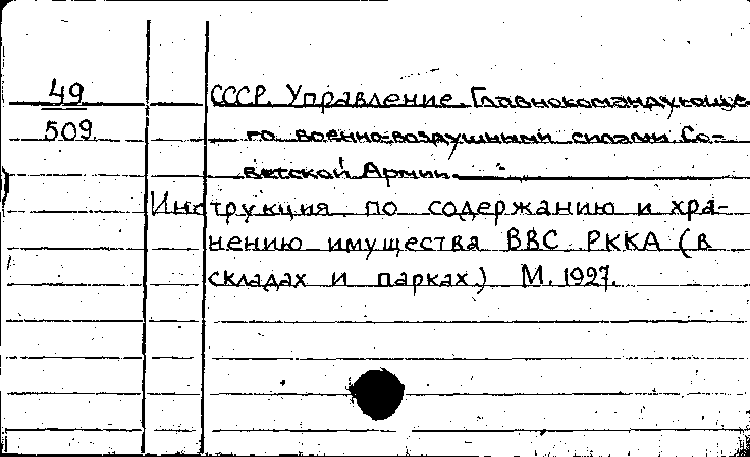 49
509
СССР. Управление Главнокомандующе
го военно-воздушными силами Со-
ветской Армии.
Инструкция по содержанию и хра-
нению имущества ВВС РККА (в
складах и парках) М. 1927.